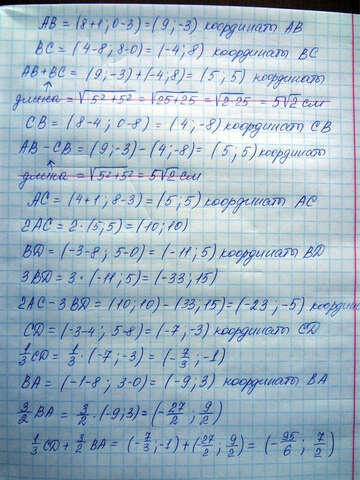 AB = (8+1; 0-3) = (9; -3) координаты AB
BC = (4-8; 8-0) = (-4; 8) координаты BC
AB+BC = (9; -3)+(-4; 8) = (5; 5) координаты
длина = √5²+5² = √25+25 = √2·25 = 5√2 см
CB = (8-4; 0-8) = (4; -8) координаты CB
AB - CB = (9; -3) - (4; -8) = (5; 5) координаты
длина = √5²+5² = 5√2 см
AC = (4+1; 8-3) = (5; 5) координаты AC
2AC = 2·(5; 5) = (10; 10)
BD = (-3-8; 5-0) = (-11; 5) координаты BD
3BD = 3·(-11; 5) = (-33; 15)
2AC - 3BD = (10; 10) - (33; 15) = (-23; -5) координ
CD = (-3-4; 5-8) = (-7; -3) координаты CD
1/3 CD = 1/3 · (-7; -3) = (-7/3; -1)
BA = (-1-8; 3-0) = (-9; 3) координаты BA
3/2 BA = 3/2 · (-9; 3) = (-27/2; 9/2)
1/3 CD + 3/2 BA = (-7/3; -1) + (27/2; 9/2) = (-95/6; 7/2)